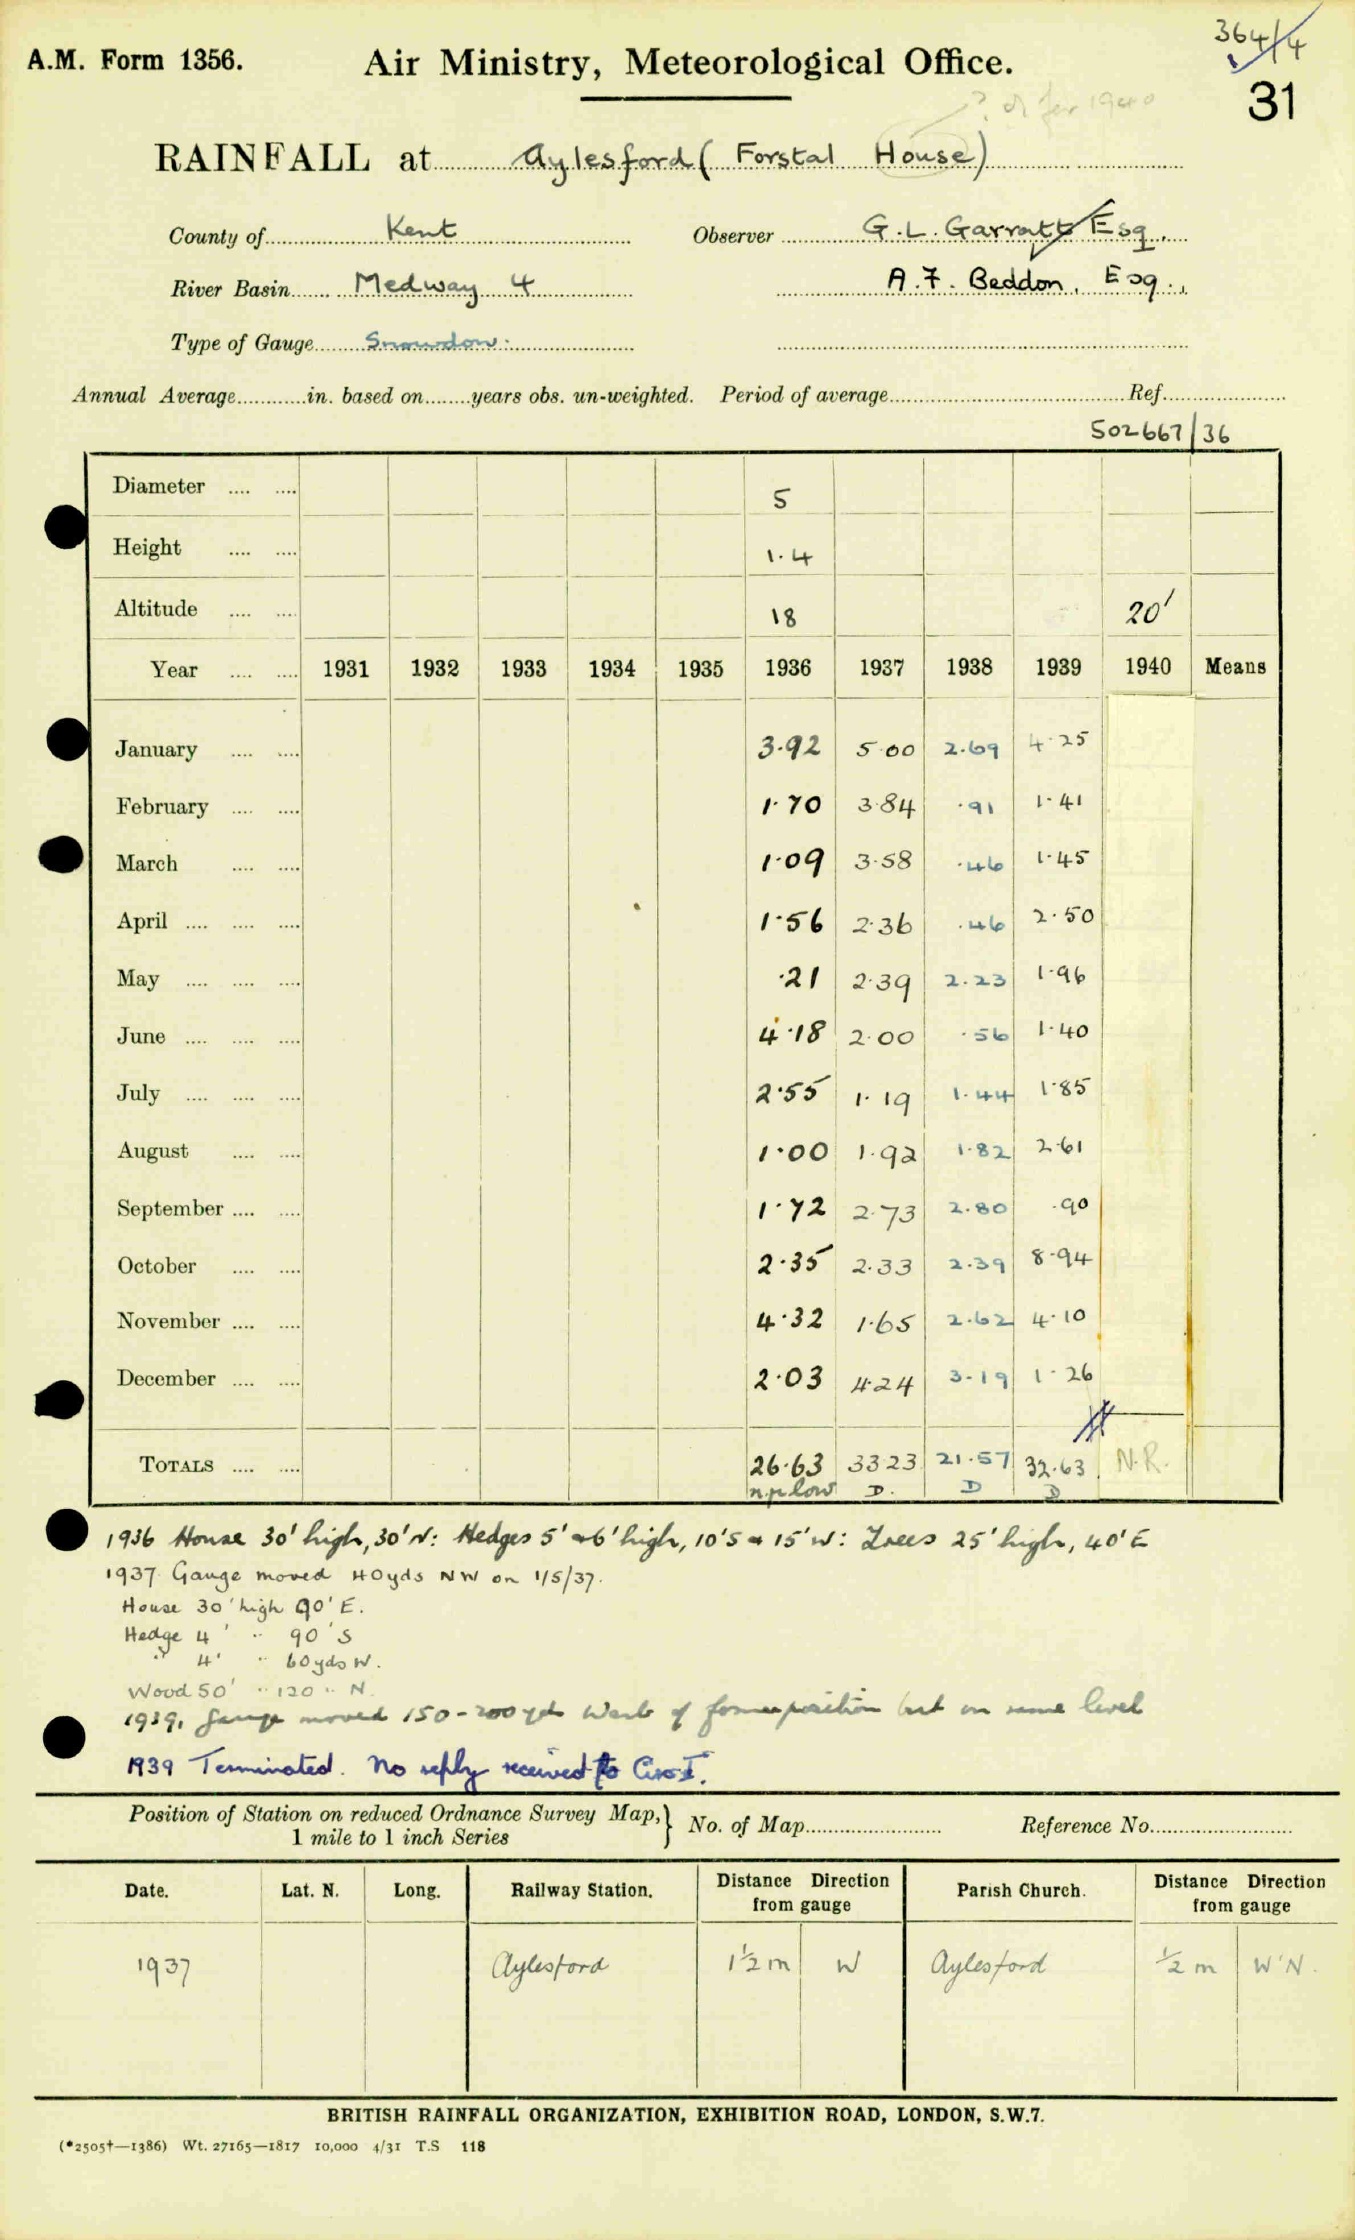 364/4
A.M. Form 1356. Air Ministry, Meteorological Office.
31
RAINFALL at Aylesford (Forstal House)
County of Kent Observer G. L. Garratt Esq.
River Basin Medway 4 A. F. Beddon, Esq.,
Type of Gauge Snowdon.
Annual Average............in. based on........years obs. un-weighted. Period of average.............Ref.............
502667/36
Diameter .... .... 5
Height .... .... 1.4
Altitude .... .... 18 20'
Year .... .... 1931 1932 1933 1934 1935 1936 1937 1938 1939 1940 Means
January .... .... 3.92 5.00 2.69 4.25
February .... .... 1.70 3.84 .91 1.41
March .... .... 1.09 3.58 .46 1.45
April .... .... .... 1.56 2.36 .46 2.50
May .... .... .... .21 2.39 2.23 1.96
June .... .... .... 4.18 2.00 .56 1.40
July .... .... .... 2.55 1.19 1.44 1.85
August .... .... 1.00 1.92 1.82 2.61
September .... .... 1.72 2.73 2.80 .90
October .... .... 2.35 2.33 2.39 8.94
November .... .... 4.32 1.65 2.62 4.10
December .... .... 2.03 4.24 3.19 1.26
TOTALS .... .... 26.63 33.23 21.57 32.63 N.R.
low D. D D
1936 House 30' high, 30' N: Hedges 5' & 6' high, 10' S & 15' W: Trees 25' high, 40' E
1937 Gauge moved 40yds NW on 1/5/37.
House 30' high 90' E.
Hedge 4' " 90' S
" 4' " 60yds W.
Wood 50' " 120 " N
1939, Gauge moved 150-200 yds West of former position but on same level
1939 Terminated. No reply received to
Position of Station on reduced Ordnance Survey Map,} No. of Map.............. Reference No..............
1 mile to 1 inch Series
Date. Lat. N. Long. Railway Station. Distance Direction from gauge Parish Church. Distance Direction from gauge
1937 Aylesford 1½ m W Aylesford ½ m W'N.
BRITISH RAINFALL ORGANIZATION, EXHIBITION ROAD, LONDON, S.W.7.
(*2505†—1386) Wt. 27165—1817 10,000 4/31 T.S 118